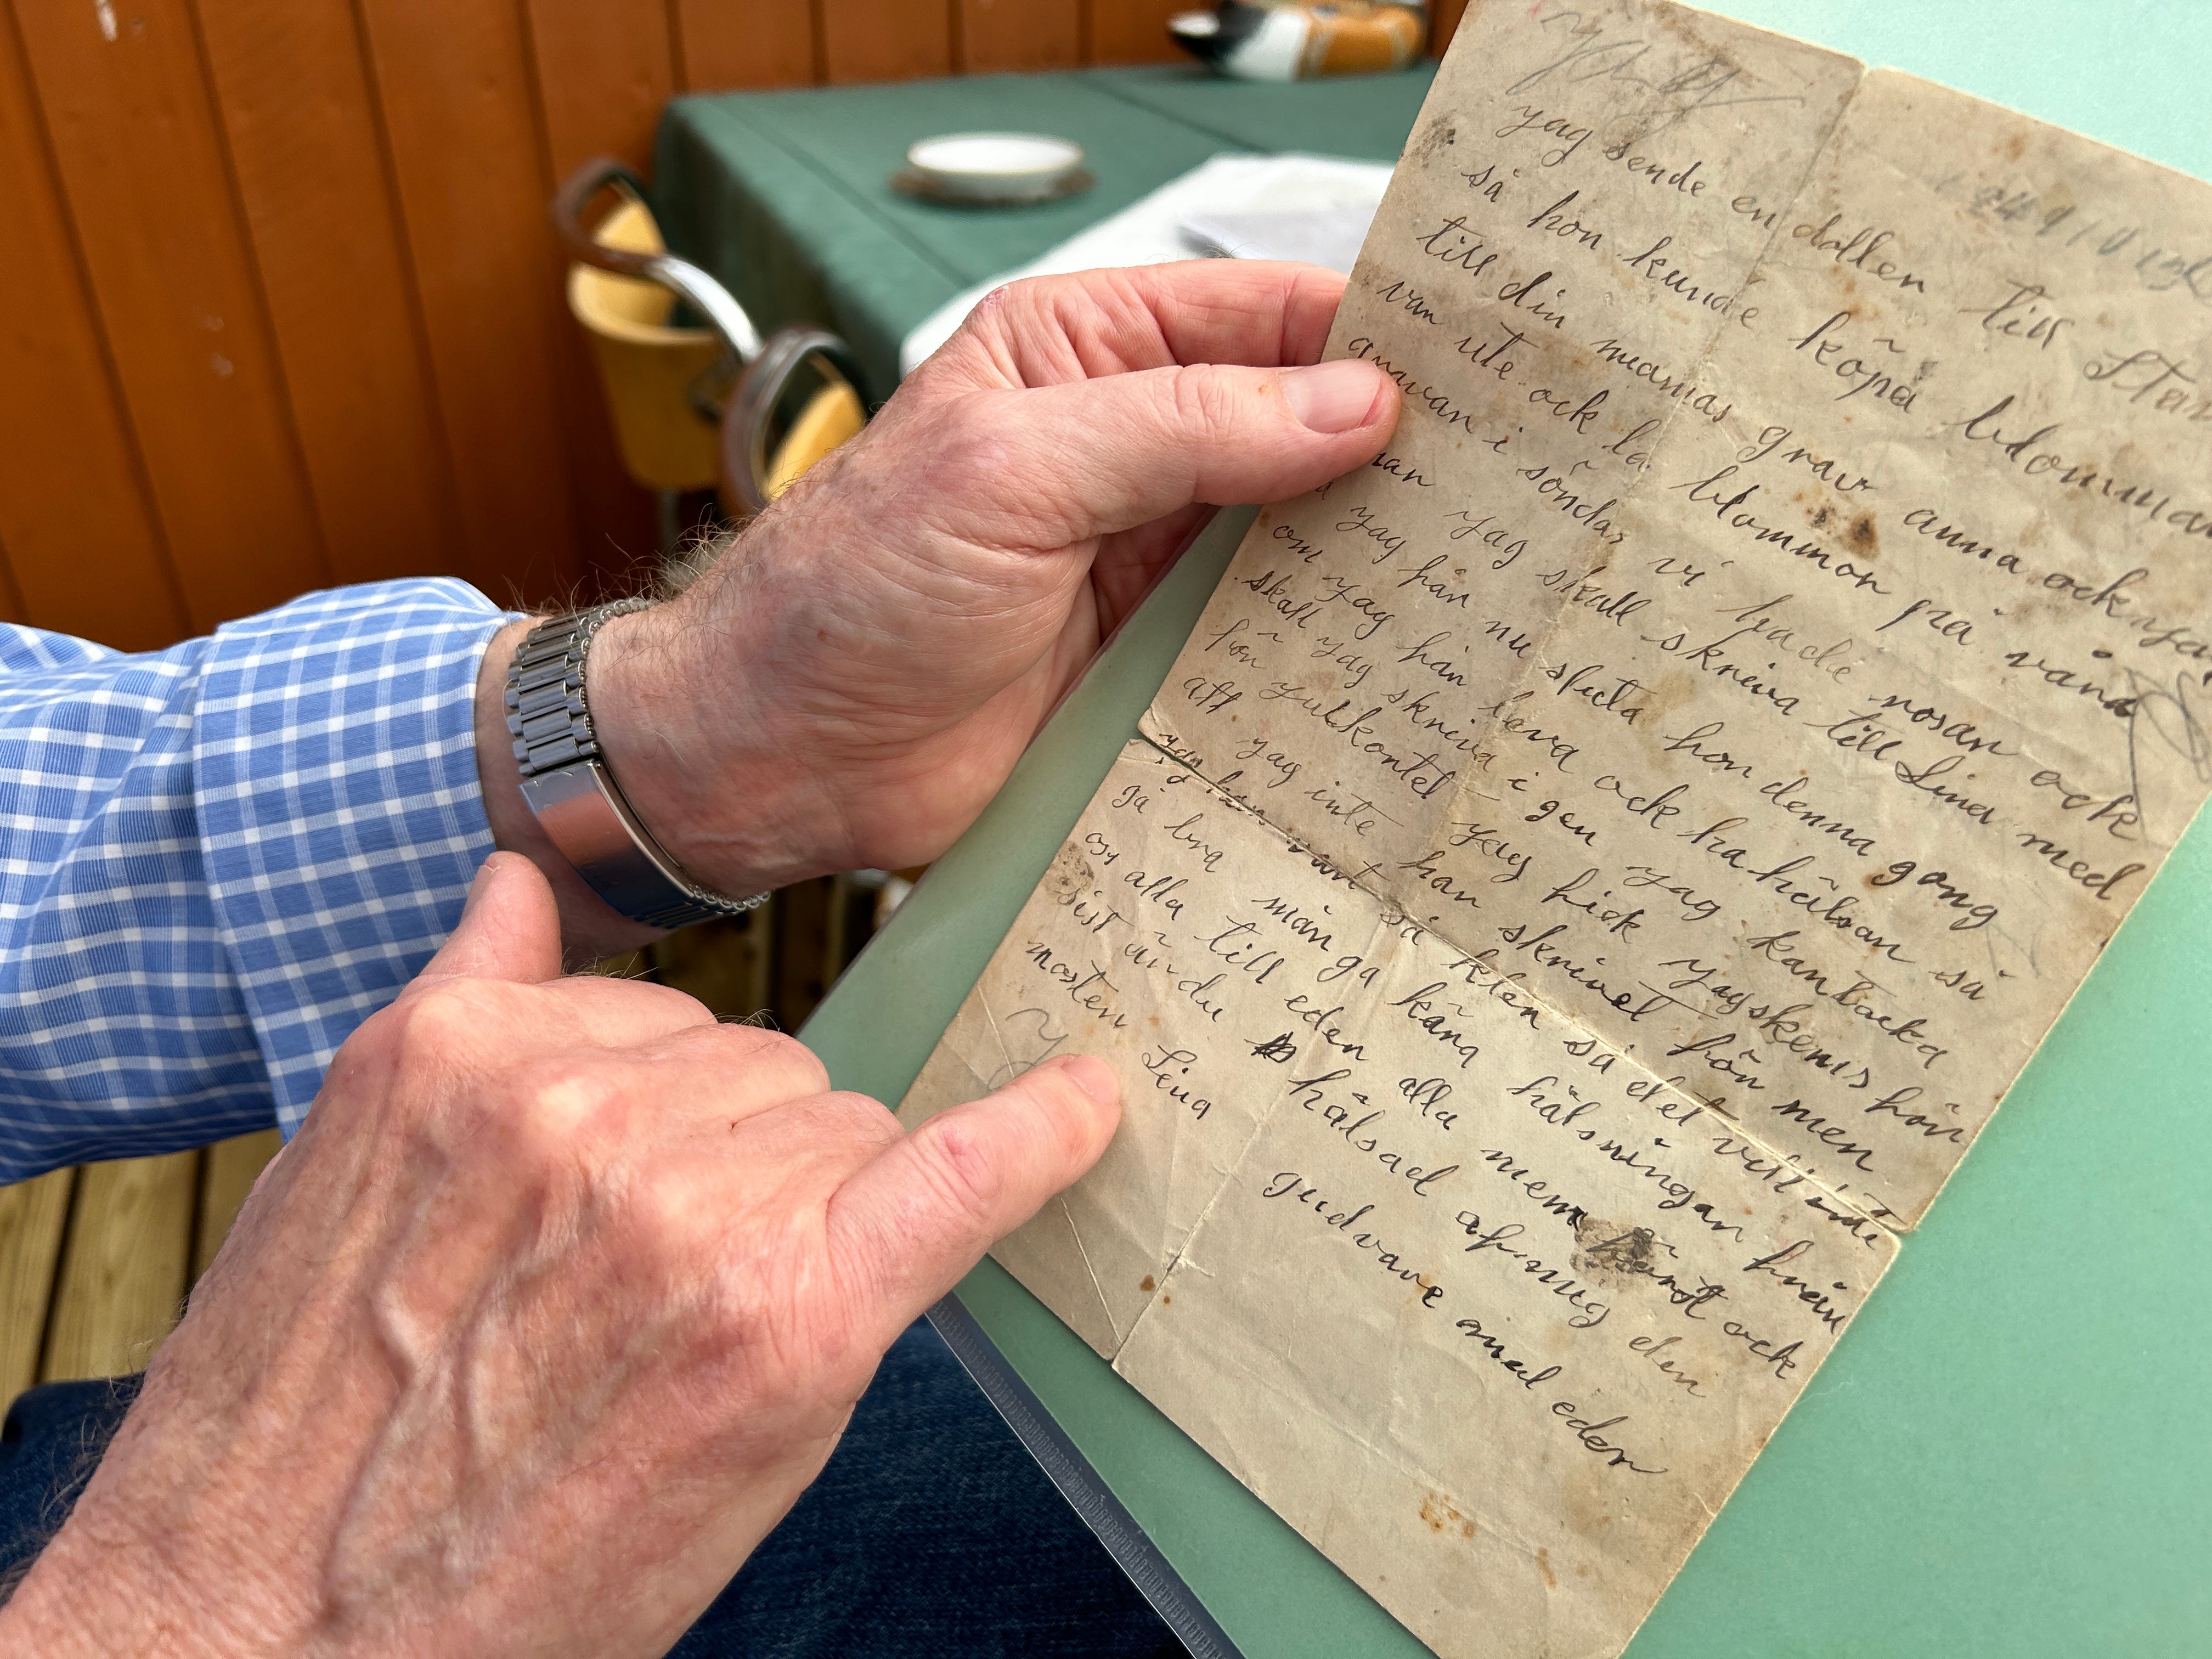 yag sende en dollen till
så hon kunde köpa blommor
till din mamas grav anna ock yag
var ute ock la blommor på våra
gravar i söndas vi hade rosar ock
yag skall skriva till Lina med
yag får nu sluta hon denna gang
om yag får leva ock ha hälsan så
skall yag skriva i gen yag kan tacka
för yulkontet yag fick yagskems hör
att yag inte har skrivet för men
yag har vart så klen så det vill inte
gå bra många kära hälsningar från
oss alla till eden alla mem ock
sist är du hälsad af mig den
moster Lina gud vare med eder